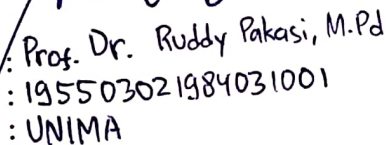 : Prof. Dr. Ruddy Pakasi, M.Pd
: 195503021984031001
: UNIMA